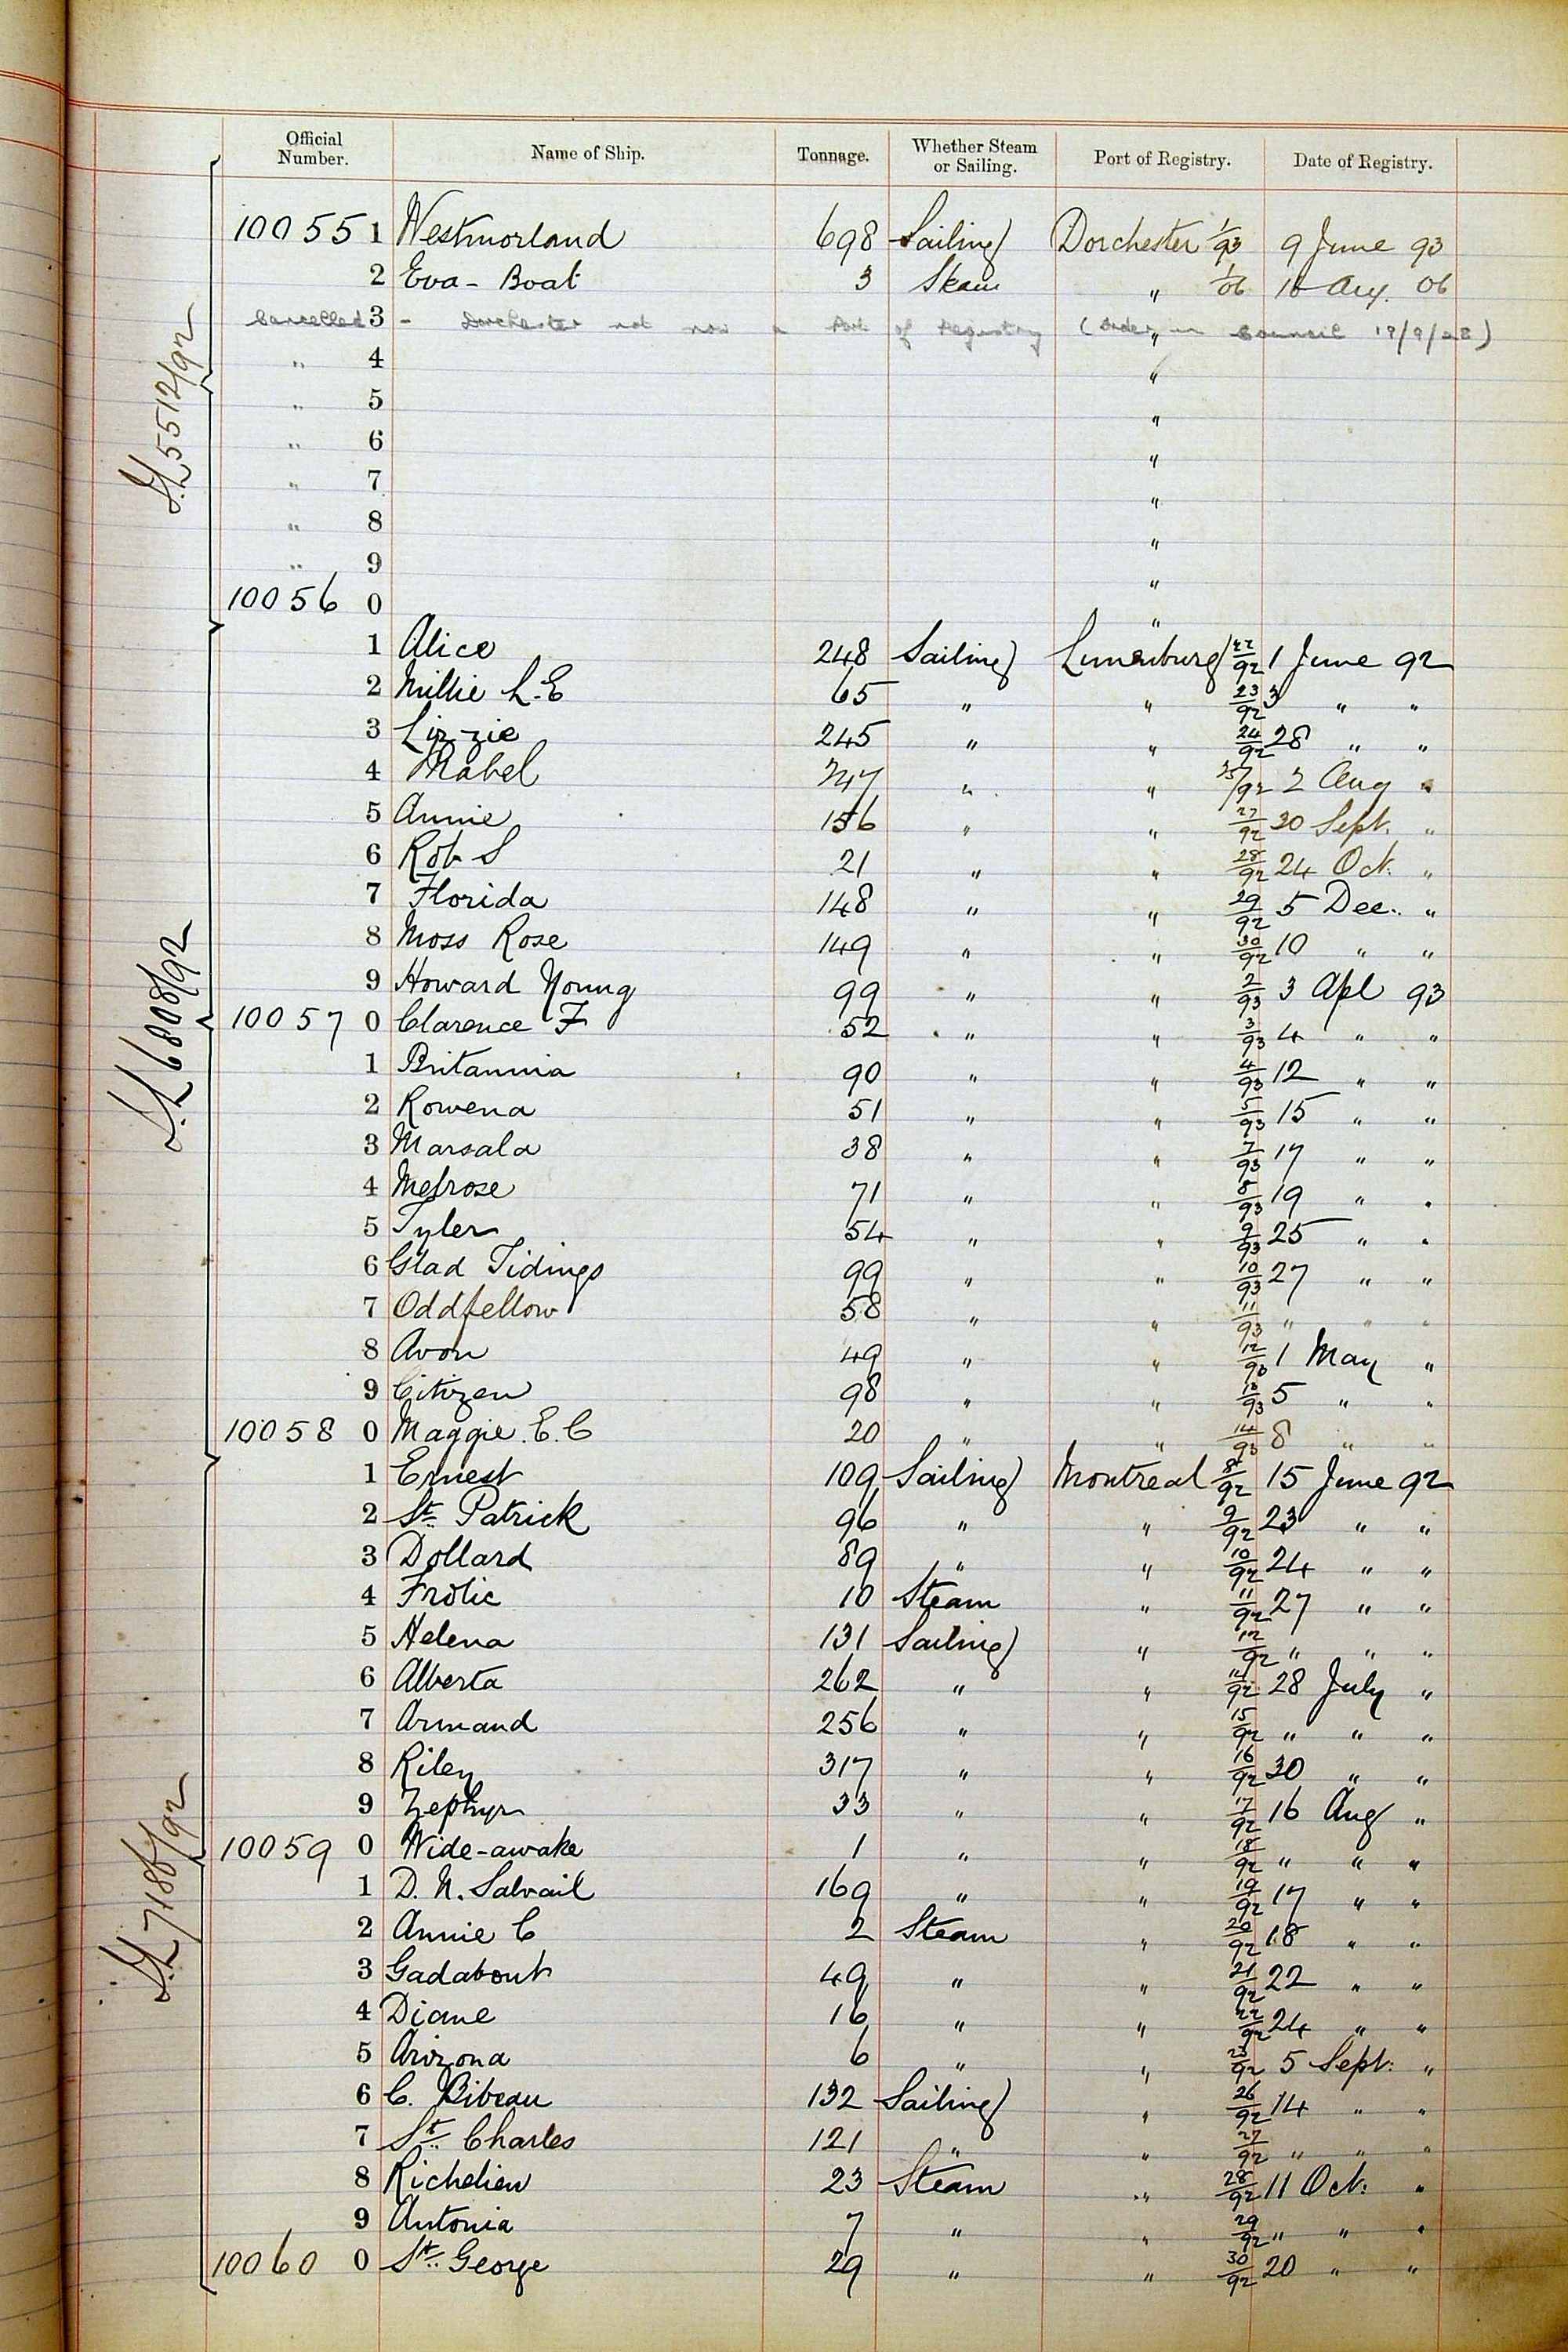 Official Number. Name of Ship. Tonnage. Whether Steam or Sailing. Port of Registry. Date of Registry.
10055 1 Westmorland 698 Sailing Dorchester 1/93 9 June 93
2 Eva-Boat 3 Steam " 1/06 16 Aug. 06
Cancelled 3 - Dorchester not now a Port of Registry (Order in Council 19/9/28) "
" 4 "
" 5 "
" 6 "
" 7 "
" 8 "
" 9 "
10056 0 "
1 Alice 248 Sailing Lunenburg 22/92 1 June 92
2 Millie L.E 65 " " 23/92 3 " "
3 Lizzie 245 " " 24/92 28 " "
4 Mabel 247 " " 25/92 2 Aug "
5 Annie 156 " " 27/92 30 Sept. "
6 Rob S 21 " " 28/92 24 Oct. "
7 Florida 148 " " 29/92 5 Dec. "
8 Moss Rose 149 " " 30/92 10 " "
9 Howard Young 99 " " 2/93 3 Apl 93
10057 0 Clarence F 52 " " 3/93 4 " "
1 Britannia 90 " " 4/93 12 " "
2 Rowena 51 " " 5/93 15 " "
3 Marsala 38 " " 7/93 17 " "
4 Melrose 71 " " 8/93 19 " "
5 Tyler 54 " " 9/93 25 " "
6 Glad Tidings 99 " " 10/93 27 " "
7 Oddfellow 58 " " 11/93 " " "
8 Avon 49 " " 12/93 1 May "
9 Citizen 98 " " 13/93 5 " "
10058 0 Maggie E.C 20 " " 14/93 8 " "
1 Ernest 109 Sailing Montreal 8/92 15 June 92
2 St. Patrick 96 " " 9/92 23 " "
3 Dollard 89 " " 10/92 24 " "
4 Frolic 10 Steam " 11/92 27 " "
5 Helena 131 Sailing " 12/92 " " "
6 Alberta 262 " " 28 July "
7 Armand 256 " " 15/92 " " "
8 Riley 317 " " 16/92 30 " "
9 Zephyr 33 " " 17/92 16 Aug "
10059 0 Wide-awake 1 " " 18/92 " " "
1 D. N. Salvail 169 " " 19/92 17 " "
2 Annie C 2 Steam " 20/92 18 " "
3 Gadabout 49 " " 21/92 22 " "
4 Diane 16 " " 22/92 24 " "
5 Arizona 6 " " 23/92 5 Sept. "
6 C. Bibeau 132 Sailing " 26/92 14 " "
7 St. Charles 121 " " 27/92 " " "
8 Richelieu 23 Steam " 28/92 11 Oct. "
9 Antonia 7 " " 29/92 " " "
10060 0 St. George 29 " " 30/92 20 " "
5512/92
6808/92
7188/92